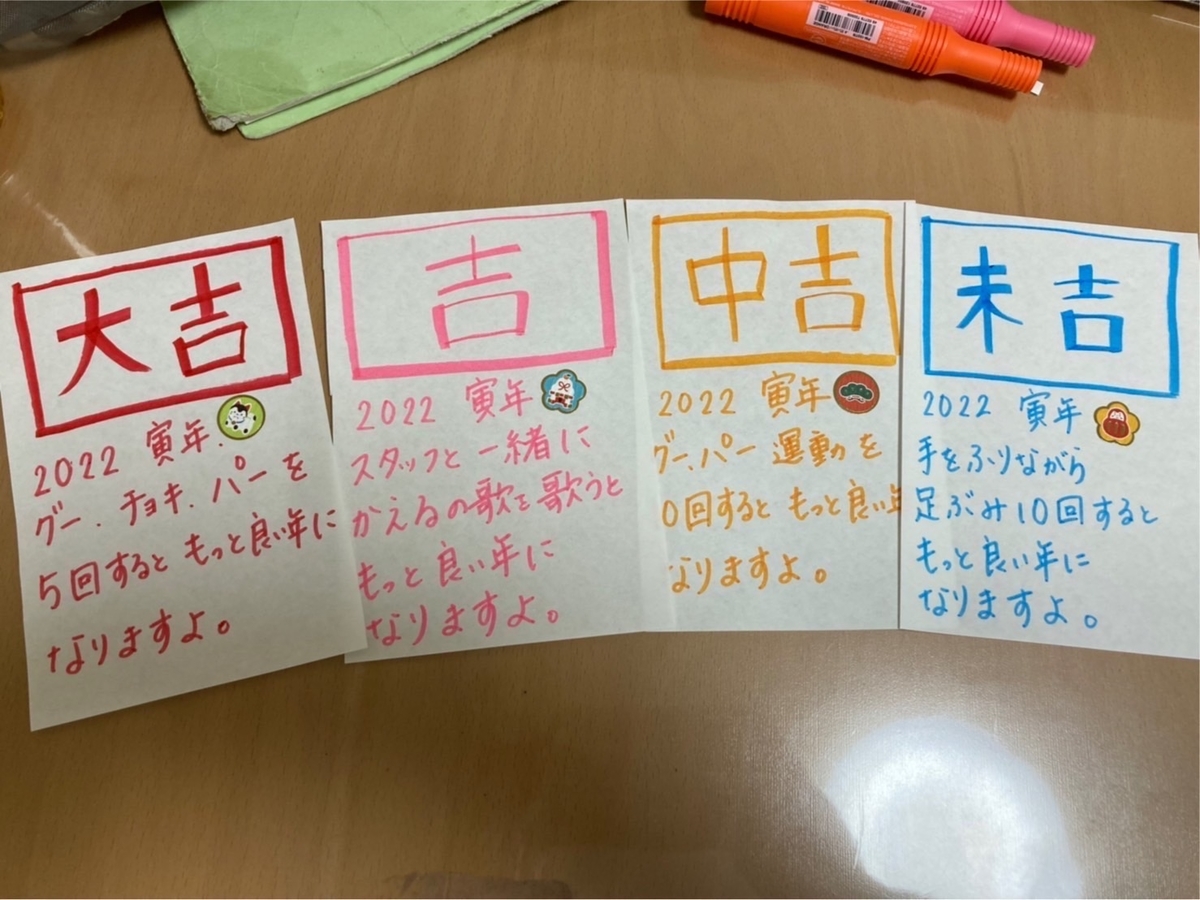 大吉
2022 寅年.
グー.チョキ.パーを
5回すると もっと良い年に
なりますよ。
吉
2022 寅年
スタッフと一緒に
かえるの歌を歌うと
もっと良い年に
なりますよ。
中吉
2022 寅年
グー、パー 運動を
0回すると もっと良い年
なりますよ。
未吉
2022 寅年
手をふりながら
足ぶみ10回すると
もっと良い年に
なりますよ。